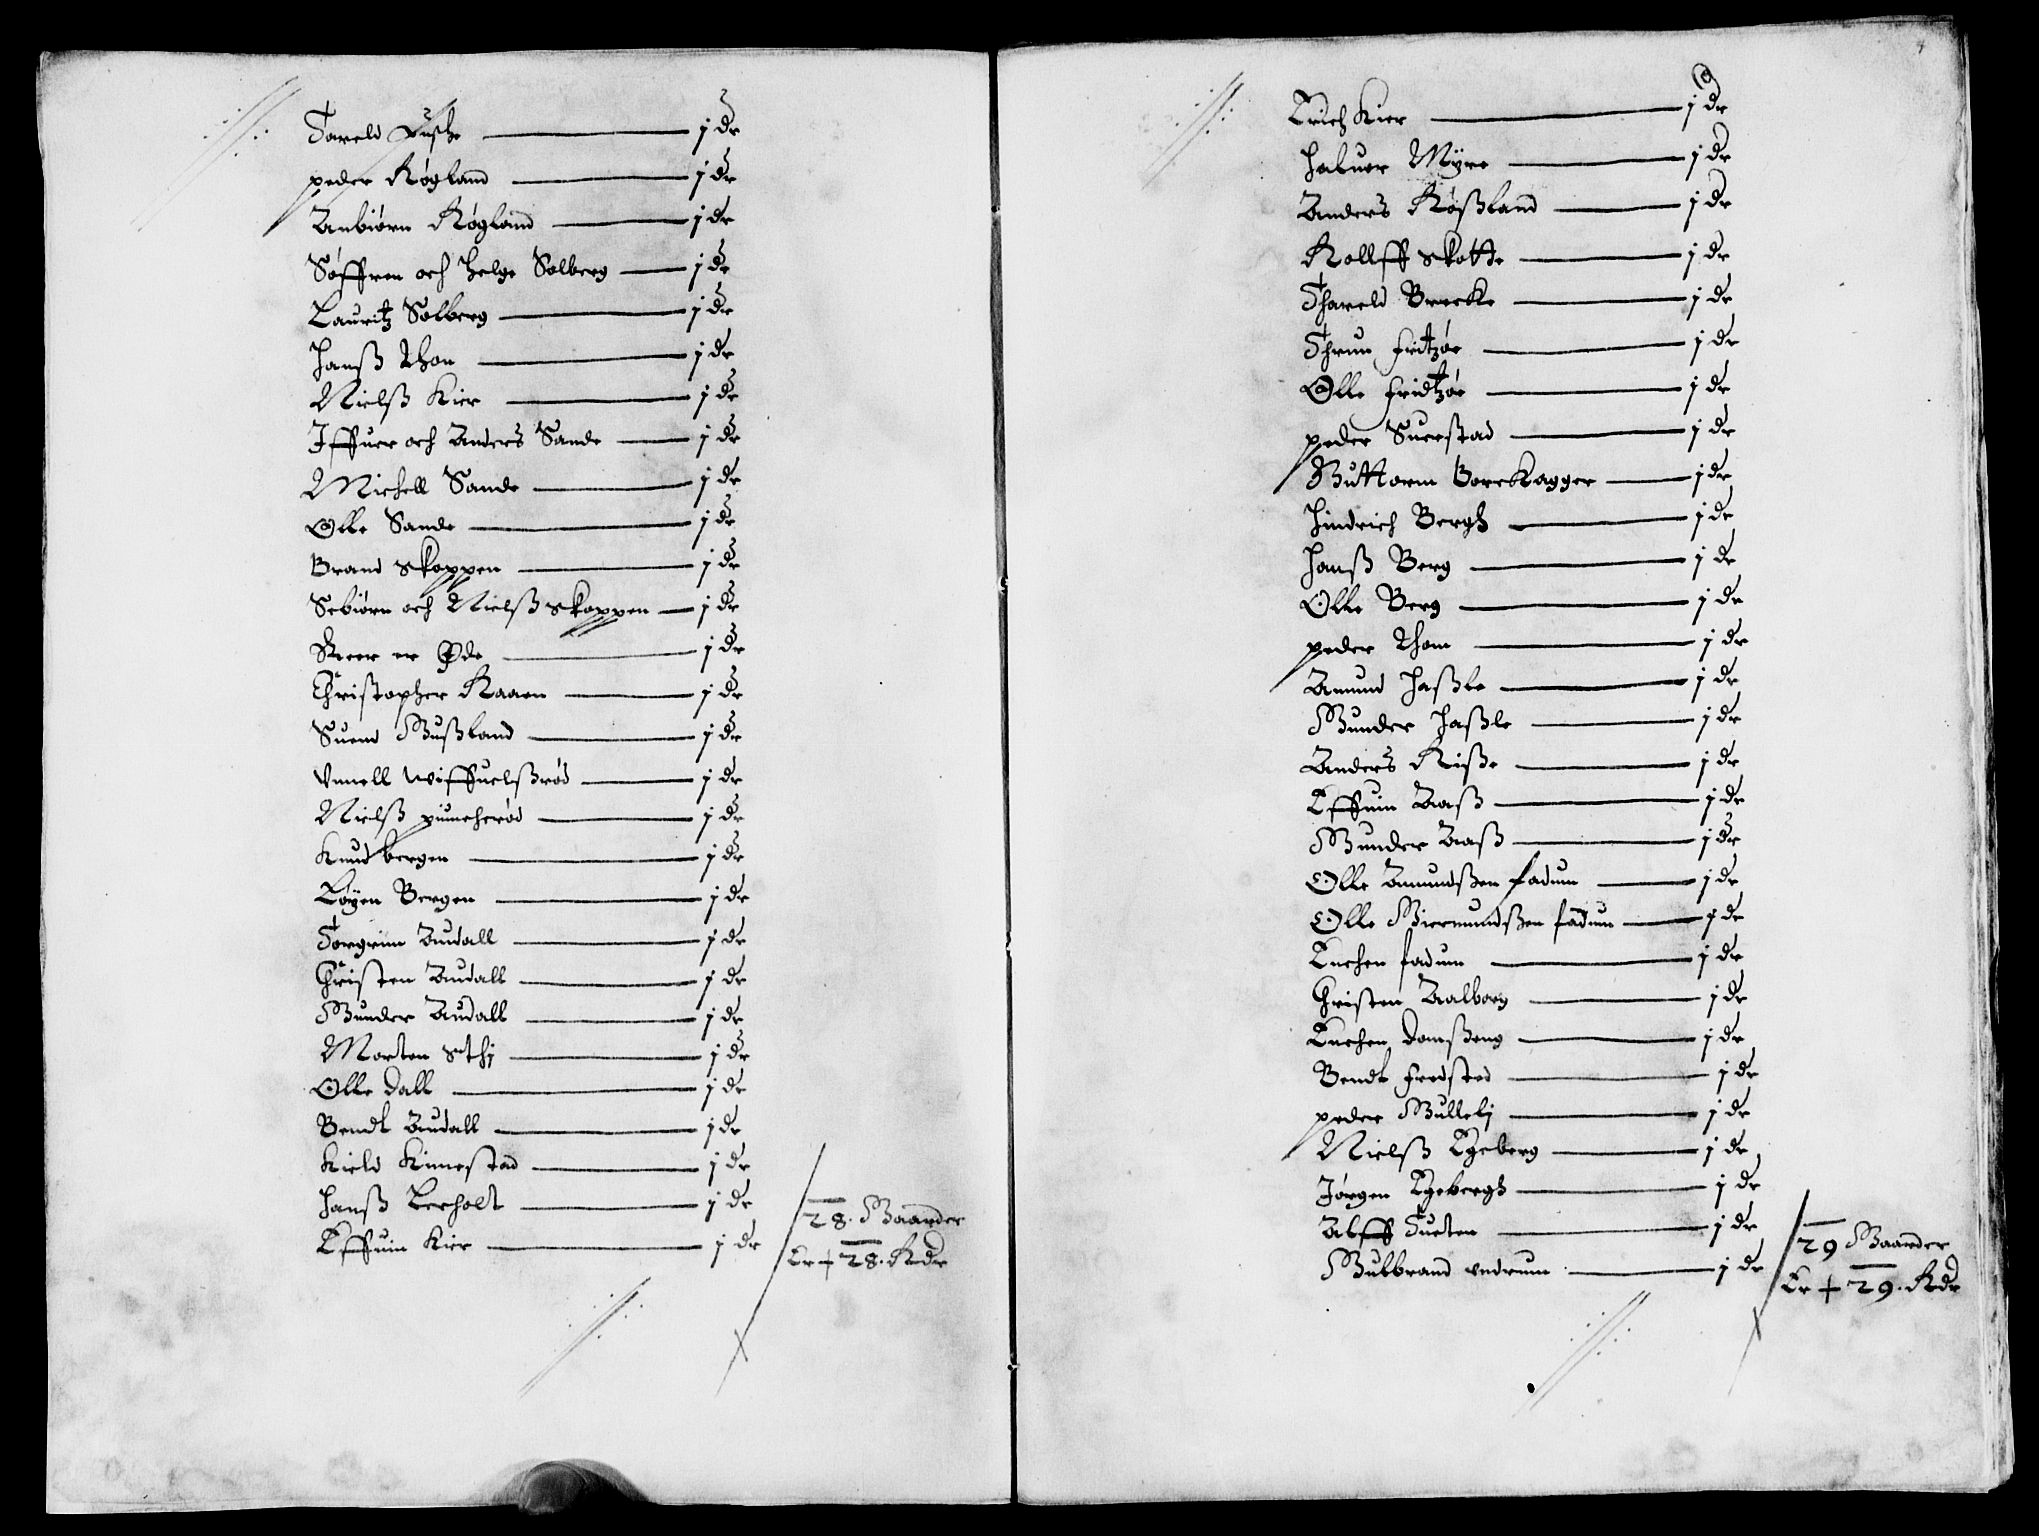 Tareld j dr
peder Røgland j dr
Anbiørn Røgland j dr
Søffren och Helge Solberg j dr
Lauritz Solberg j dr
Hanß Thon j dr
Nielß Kier j dr
Iffuer och Anders Sande j dr
Michell Sande j dr
Olle Sande j dr
Brand Skoppen j dr
Sebiørn och Nielß Skoppen j dr
er Øde j dr
Christopher Raaen j dr
Suend Gußland j dr
wiffuelßrød j dr
Nielß j dr
Knud bergen j dr
Løyen Bergen j dr
Torgrim Audall j dr
Christen Audall j dr
Gunder Audall j dr
Morten Sthj j dr
Olle dall j dr
Bendt Audall j dr
Kield Kimestad j dr
Hanß Lerholt j dr
Effuin Kier j dr
28. Gaarder
Er + 28. Rdr
4
Erich Kier j dr
Haluor Myre j dr
Anders Røßland j dr
Rollff Skotte j dr
Thareld Brecke j dr
Thrun Fritzøe j dr
Olle Fridtzøe j dr
peder Suerstad j dr
Guttorm Borckagger j dr
Hindrich Bergh j dr
Hanß Berg j dr
Olle Berg j dr
peder Thom j dr
Amund Haßle j dr
Gunder Haßle j dr
Anders Riße j dr
Effuin Aaß j dr
Gunder Aaß j dr
Olle Amundßen fadum j dr
Olle Giermundßen fadum j dr
Euchen fadum j dr
Christen Aalborg j dr
Euchen Damßeng j dr
Bendt Fredsted j dr
peder Gullelj j dr
Nielß Egeberg j dr
Jørgen Egebergh j dr
Alff Tueten j dr
Gulbrand vndrum j dr
29 Gaarder
Er + 29. Rdr